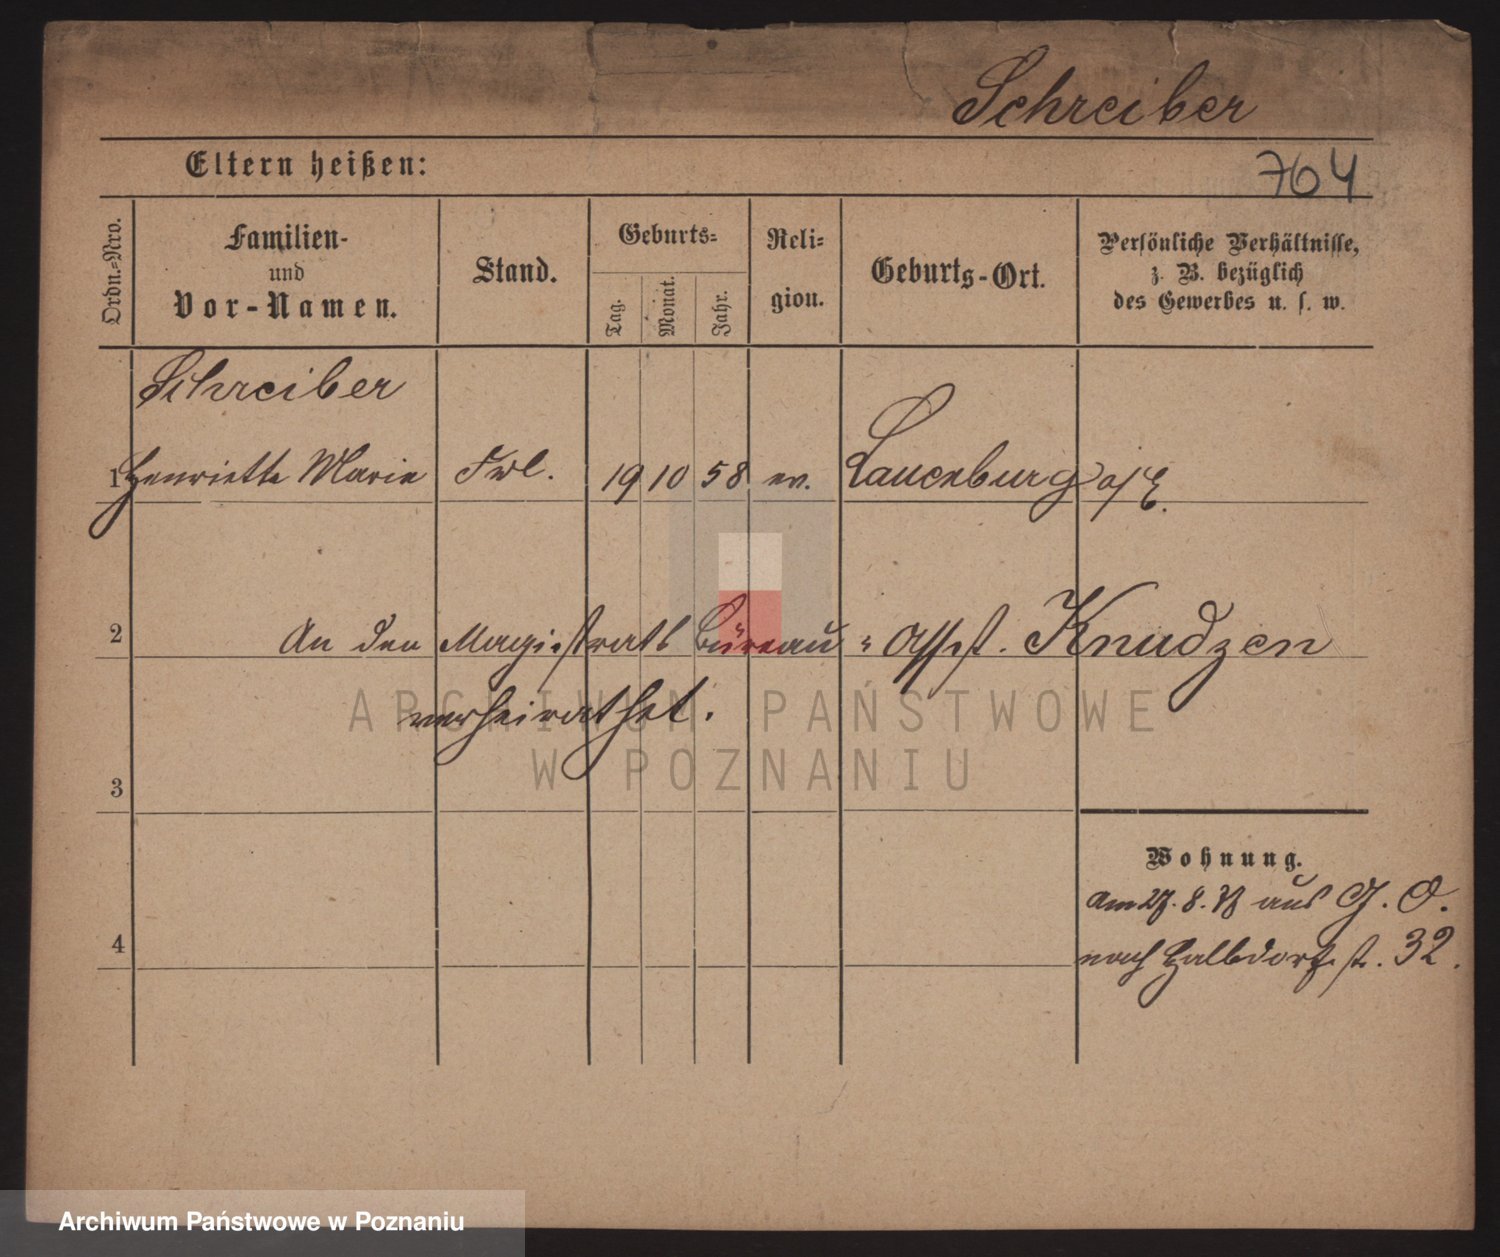 Schreiber
Eltern heißen:
764
Ordn.-Nro.
Familien- und Vor-Namen.
Stand.
Geburts-
Tag.
Monat.
Jahr.
Religion.
Geburts-Ort.
Persönliche Verhältnisse, z. B. bezüglich des Gewerbes u. s. w.
Schreiber
1 Henriette Marie Frl. 19 10 58 ev. Lauenburg a/E.
2 An den Magistrats Bureau-Assist. Knudzen
verheirathet.
3
Wohnung.
am 27. 8. aus G. O.
4
nach Halbdorfst. 32.
ARCHIWUM PAŃSTWOWE
W POZNANIU
Archiwum Państwowe w Poznaniu